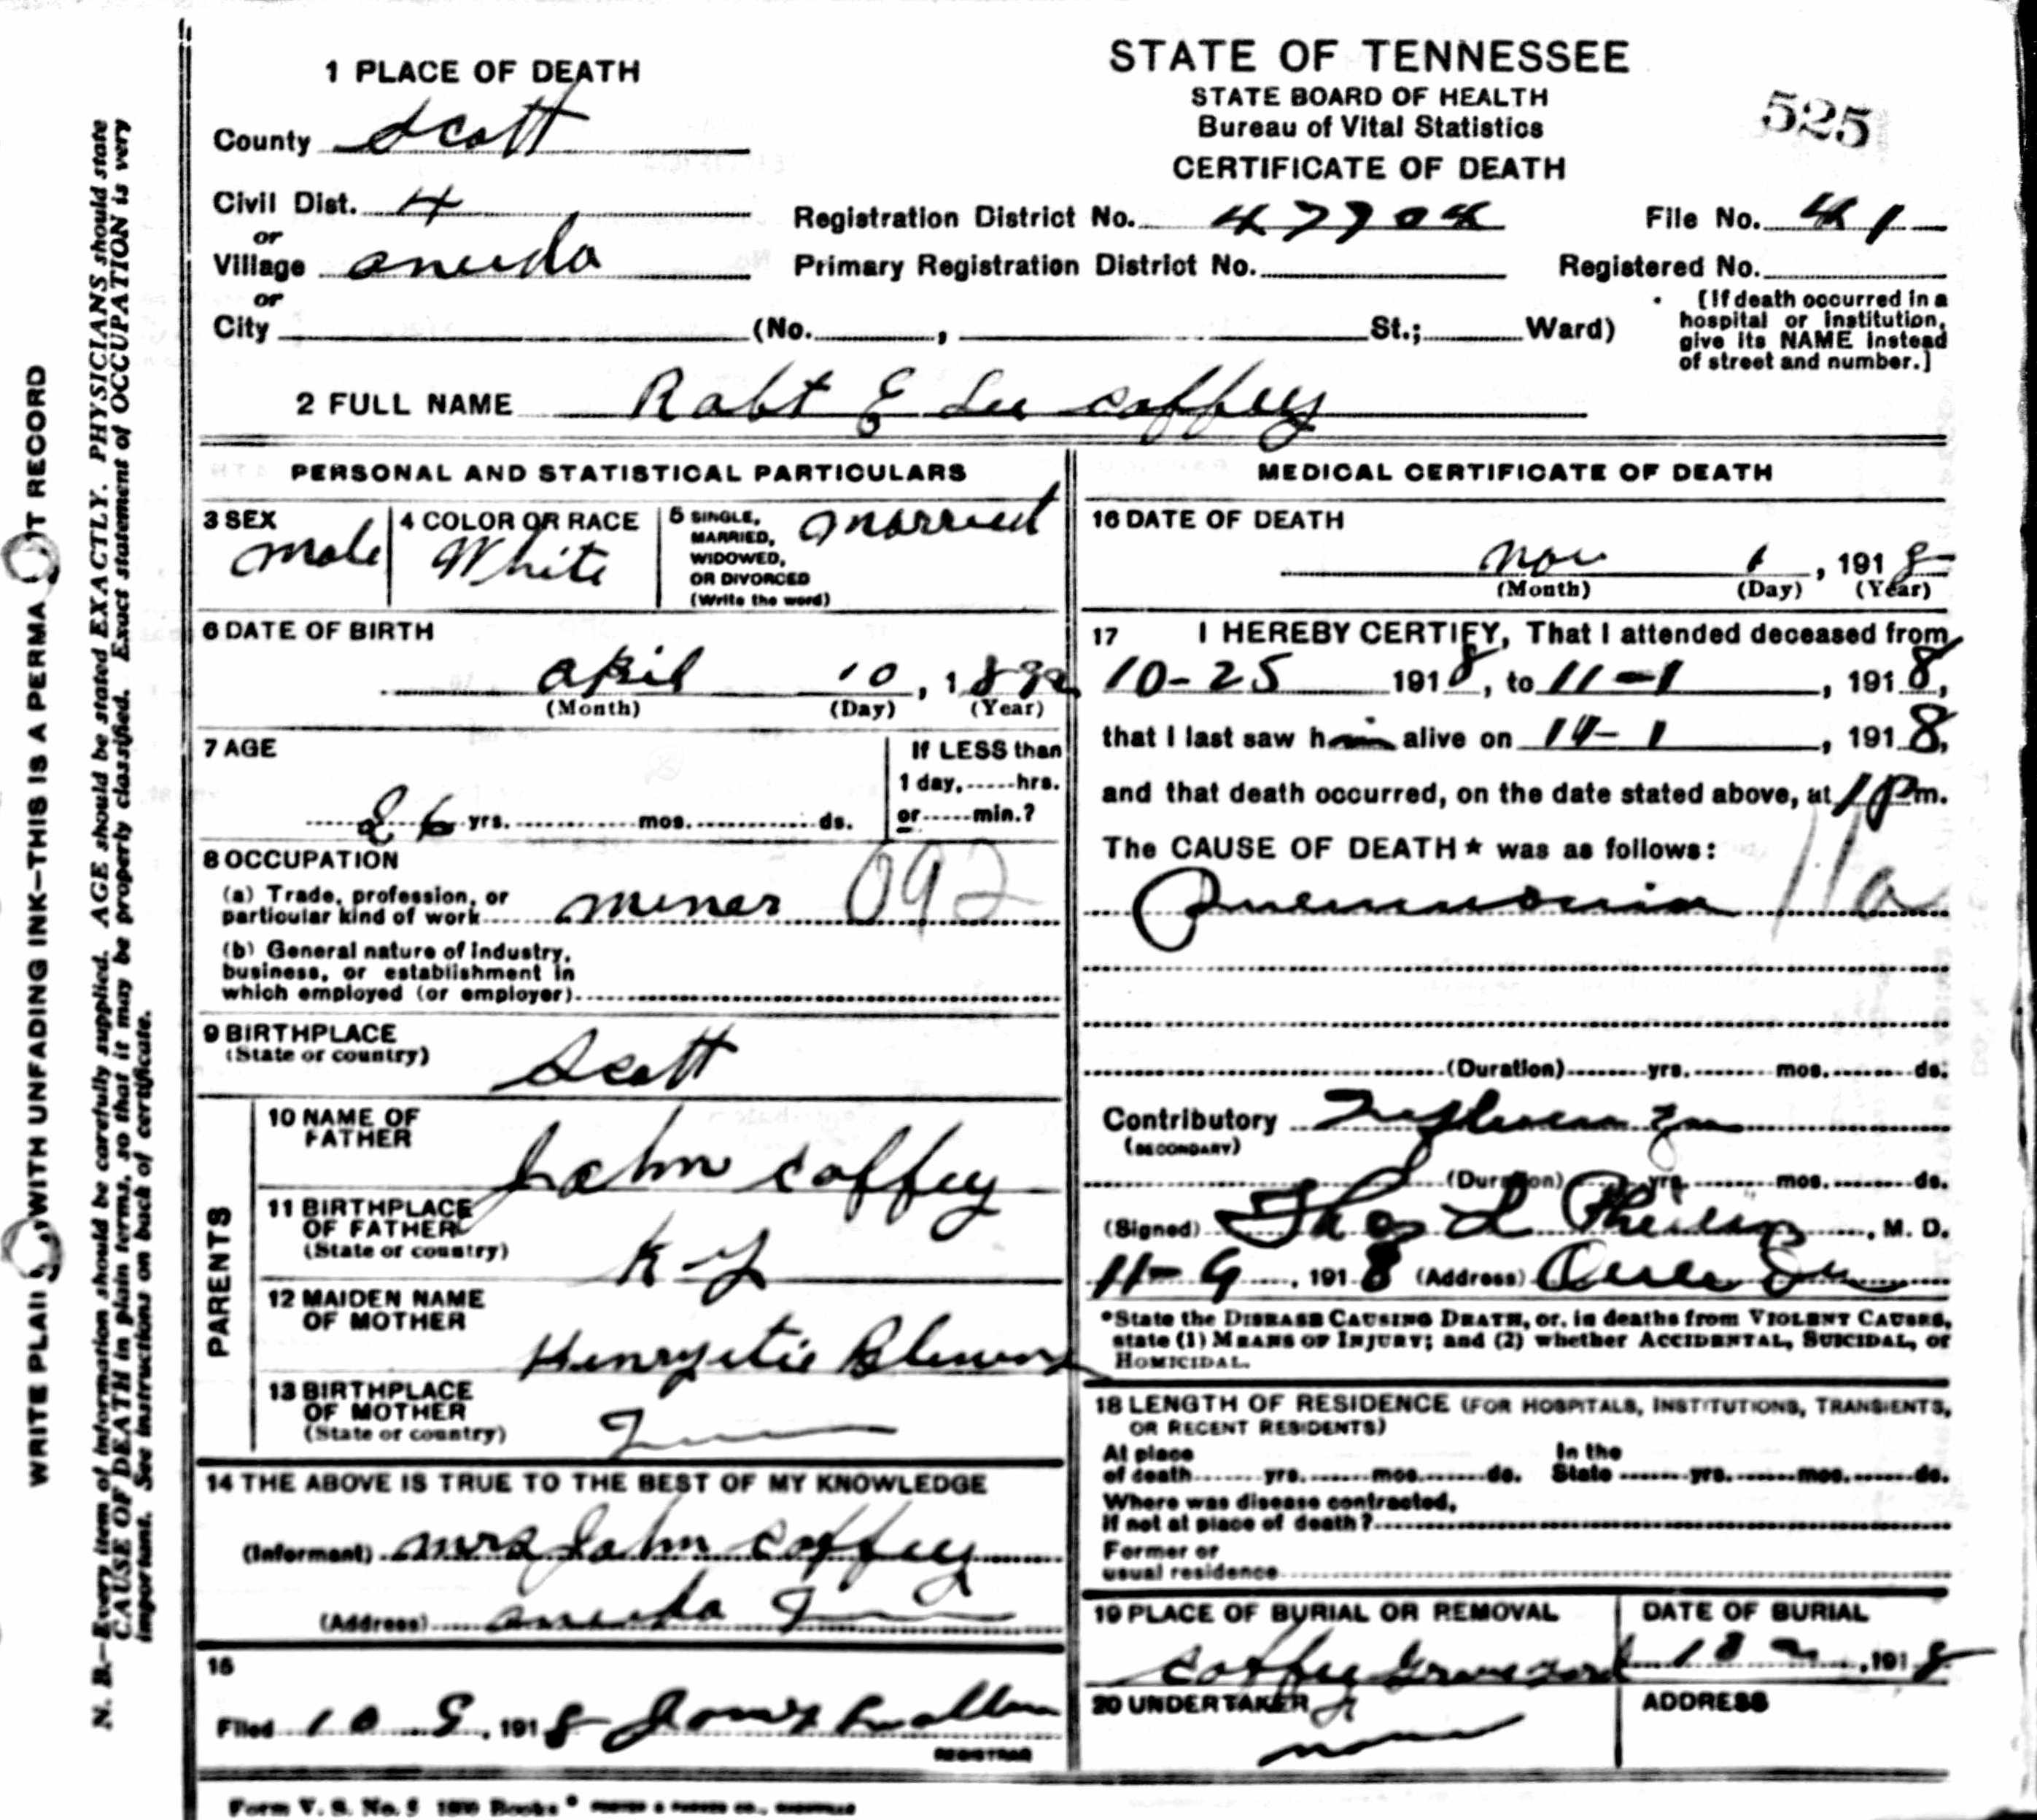 1 PLACE OF DEATH
County Scott
Civil Dist. 4
or
Village Oneida
or
City (No. , St.; Ward)
STATE OF TENNESSEE
STATE BOARD OF HEALTH
Bureau of Vital Statistics
CERTIFICATE OF DEATH
525
Registration District No. 47704 File No. 41
Primary Registration District No. Registered No.
[If death occurred in a
hospital or institution,
give its NAME instead
of street and number.]
2 FULL NAME Robt E Lee Coffey
PERSONAL AND STATISTICAL PARTICULARS
3 SEX
Male
4 COLOR OR RACE
White
5 SINGLE,
MARRIED,
WIDOWED,
OR DIVORCED
(Write the word)
Married
6 DATE OF BIRTH
April 10, 1892
(Month) (Day) (Year)
7 AGE
26 yrs. mos. ds.
If LESS than
1 day, hrs.
or min.?
8 OCCUPATION
(a) Trade, profession, or
particular kind of work miner 092
(b) General nature of industry,
business, or establishment in
which employed (or employer)
9 BIRTHPLACE
(State or country)
Scott
PARENTS
10 NAME OF
FATHER
John Coffey
11 BIRTHPLACE
OF FATHER
(State or country)
Ky
12 MAIDEN NAME
OF MOTHER
Henryetie
13 BIRTHPLACE
OF MOTHER
(State or country)
14 THE ABOVE IS TRUE TO THE BEST OF MY KNOWLEDGE
(Informant) Mrs John Coffey
(Address) Oneida
15
Filed 10 9, 1918
REGISTRAR
Form V. S. No. 5
MEDICAL CERTIFICATE OF DEATH
16 DATE OF DEATH
Nov 1, 1918
(Month) (Day) (Year)
17 I HEREBY CERTIFY, That I attended deceased from
10-25 1918, to 11-1, 1918,
that I last saw him alive on 11-1, 1918,
and that death occurred, on the date stated above, at 1 Pm.
The CAUSE OF DEATH* was as follows:
Pneumonia 11a
(Duration) yrs. mos. ds.
Contributory Influenza
(SECONDARY)
(Duration) yrs. mos. ds.
(Signed) Thos L, M. D.
11-9, 1918 (Address)
*State the DISEASE CAUSING DEATH, or, in deaths from VIOLENT CAUSES,
state (1) MEANS OF INJURY; and (2) whether ACCIDENTAL, SUICIDAL, or
HOMICIDAL.
18 LENGTH OF RESIDENCE (FOR HOSPITALS, INSTITUTIONS, TRANSIENTS,
OR RECENT RESIDENTS)
At place In the
of death yrs. mos. ds. State yrs. mos. ds.
Where was disease contracted,
If not at place of death?
Former or
usual residence
19 PLACE OF BURIAL OR REMOVAL
Coffey Graveyard
DATE OF BURIAL
10 2, 1918
20 UNDERTAKER
none
ADDRESS
WRITE PLAI WITH UNFADING INK—THIS IS A PERMA NT RECORD
N. B.—Every item of information should be carefully supplied. AGE should be stated EXACTLY. PHYSICIANS should state
CAUSE OF DEATH in plain terms, so that it may be properly classified. Exact statement of OCCUPATION is very
important. See instructions on back of certificate.